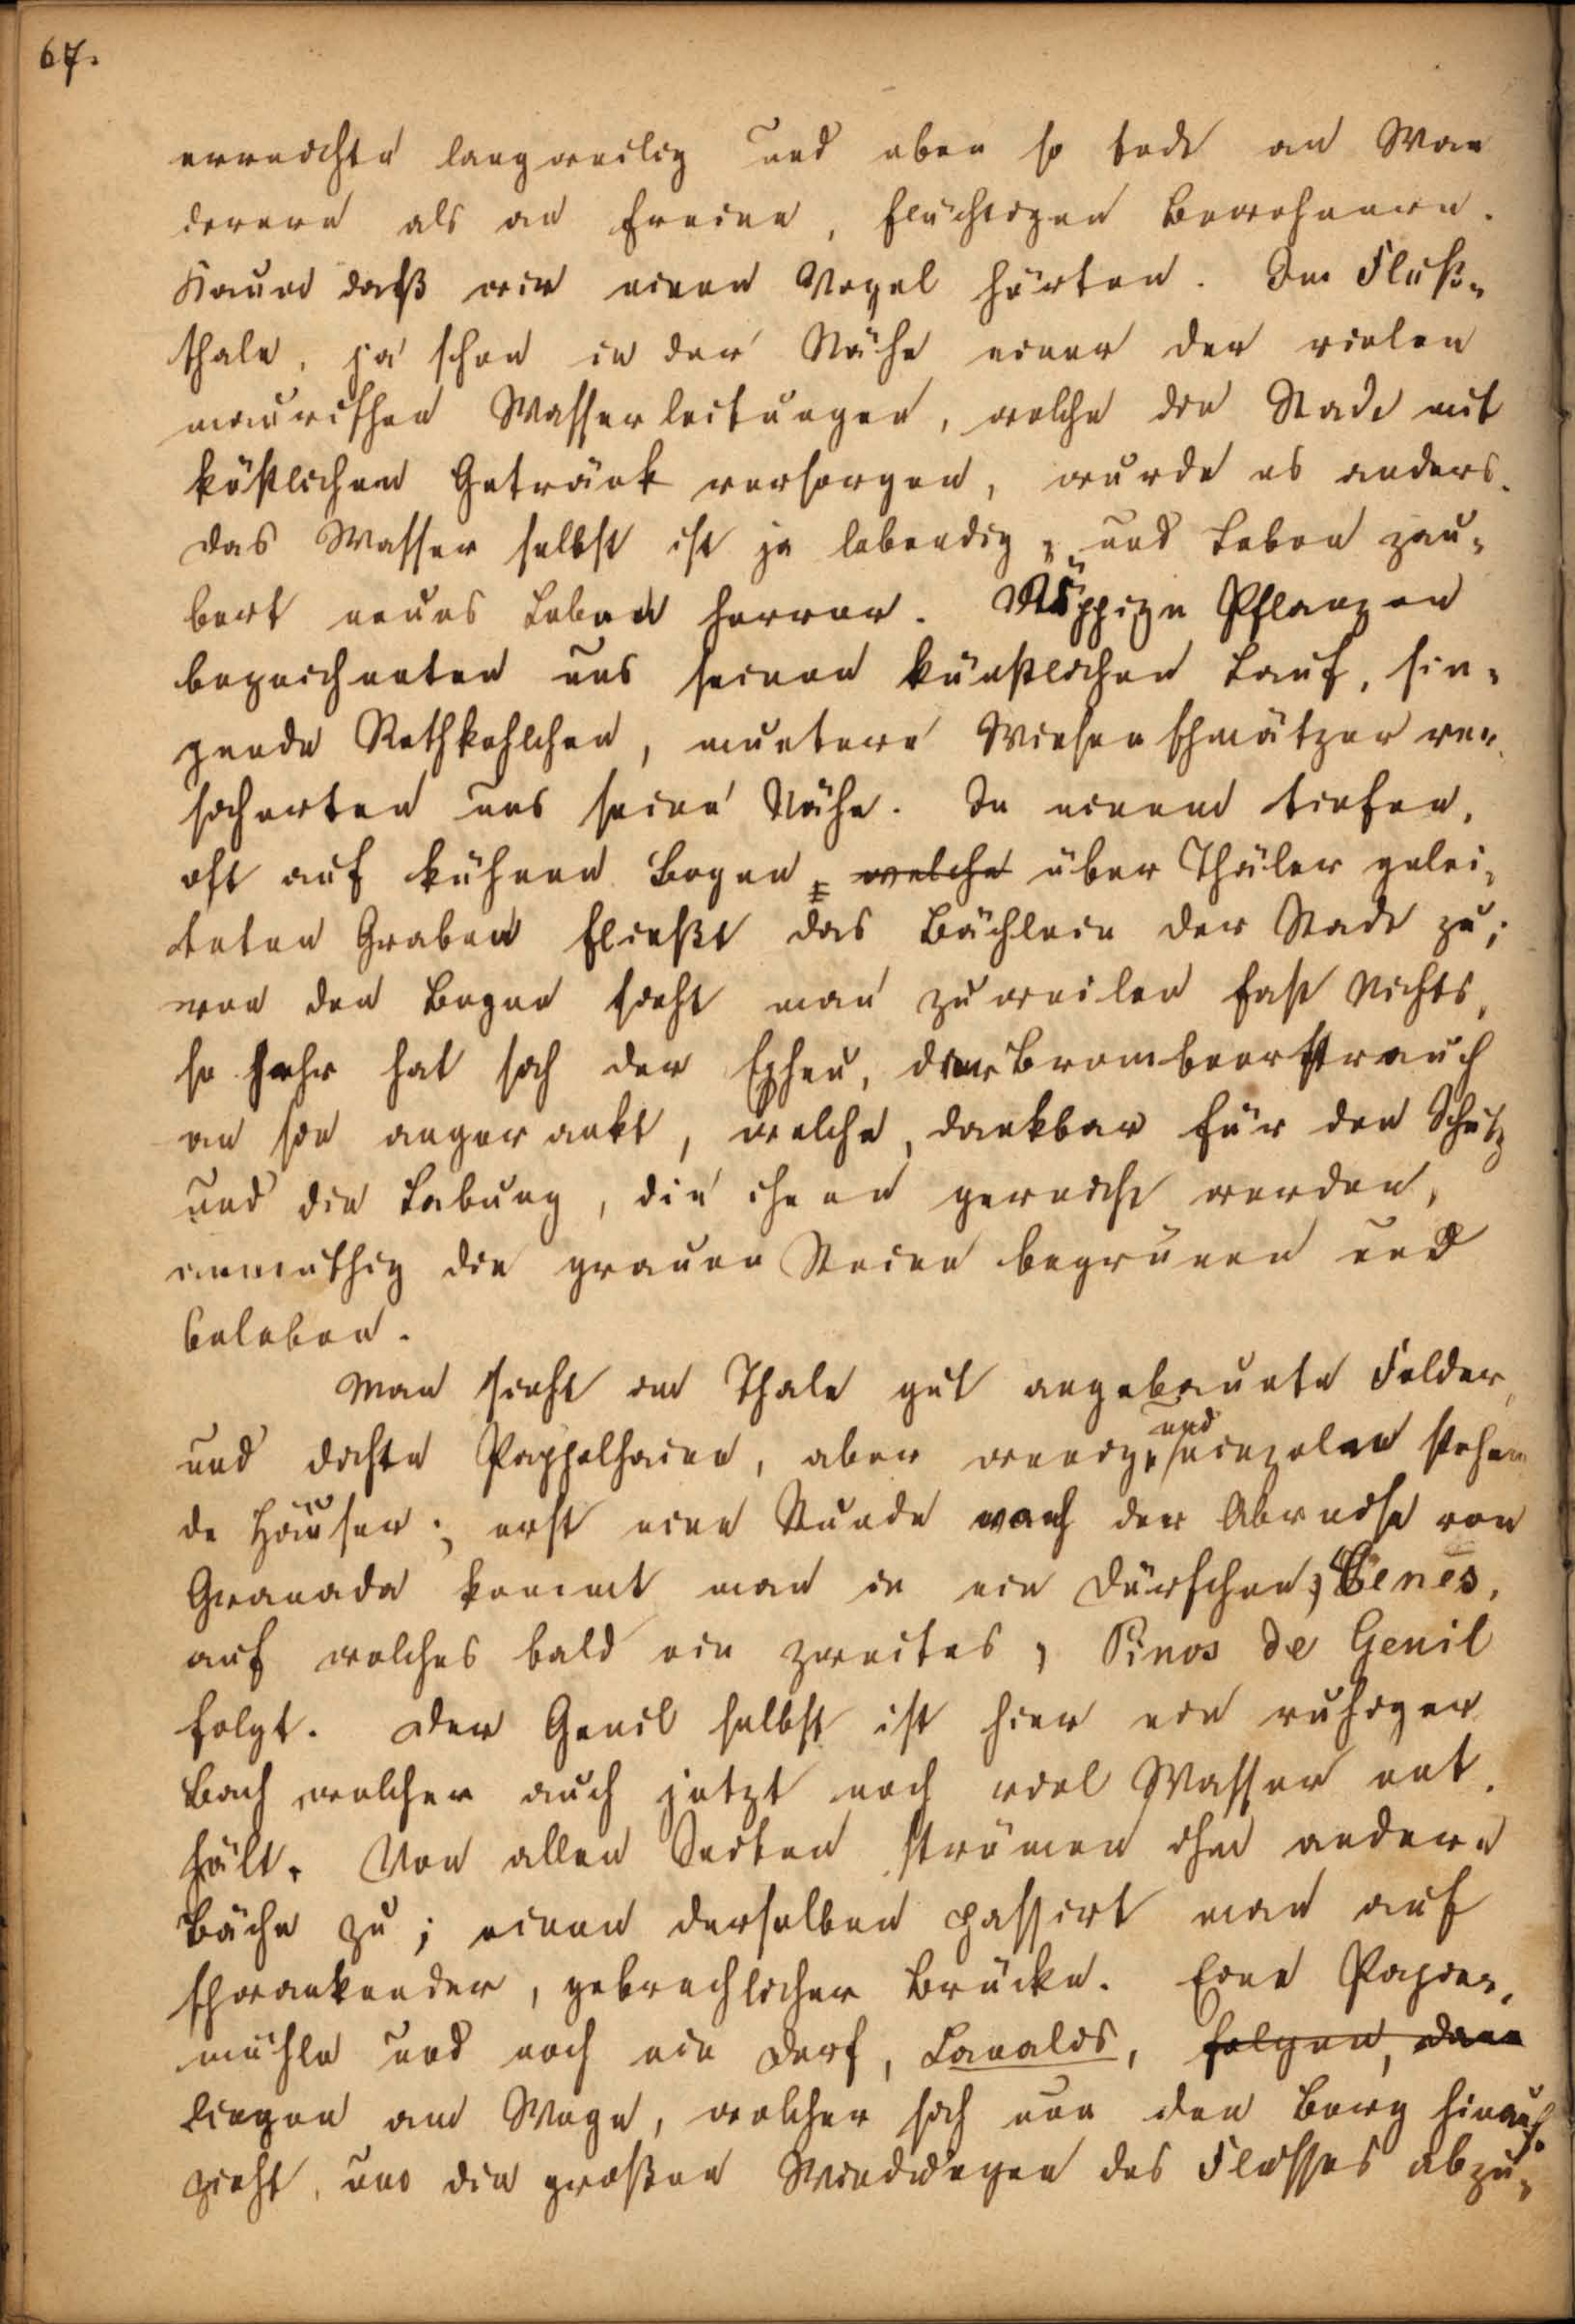 67.
erreichte langweilig und eben so todt an Wan
derern als an freien, flüchtigen Bewohnern.
Kaum daß wir einen Vogel hörten. Im Fluß-
thale, ja schon in der Nähe einer der vielen
maurischen Wasserleitungen, welche die Stadt mit
köstlichem Getränk versorgen, wurde es anders.
Das Wasser selbst ist ja lebendig, und Leben zau-
bert neues Leben hervor. Üppige Pflanzen
bezeichneten uns seinen künstlichen Lauf, sin-
gende Rothkehlchen, muntere Wiesenschmätzer ver-
sicherten uns seine Nähe. In einem tiefen,
oft auf kühnen Bogen, welche über Thäler gelei-
teten Graben fließt das Bächlein der Stadt zu;
von den Bogen sieht man zuweilen fast Nichts,
so sehr hat sich der Epheu, der Brombeerstrauch
an sie angerankt, welche, dankbar für den Schutz
und die Labung, die ihnen gereicht werden,
anmuthig die grauen Steine begrünen und
beleben.
Man sieht im Thale gut angebaute Felder,
und dichte Pappelhaine, aber wenig und einzelne stehen
de Häuser; erst eine Stunde nach der Abreise von
Granada kommt man in ein Dörfchen, Cenes,
auf welches bald ein zweites, Pinos de Genil
folgt. Der Genil selbst ist hier ein ruhiger
Bach welcher auch jetzt noch viel Wasser ent-
hält. Von allen Seiten strömen ihm andere
Bäche zu; einen derselben passirt man auf
schwankender, gebrechlicher Brücke. Eine Papier-
mühle und noch ein Dorf, Canales, folgen, dann
liegen am Wege, welcher sich nun den Berg hinauf-
zieht, um die großen Windungen des Flusses abzu-